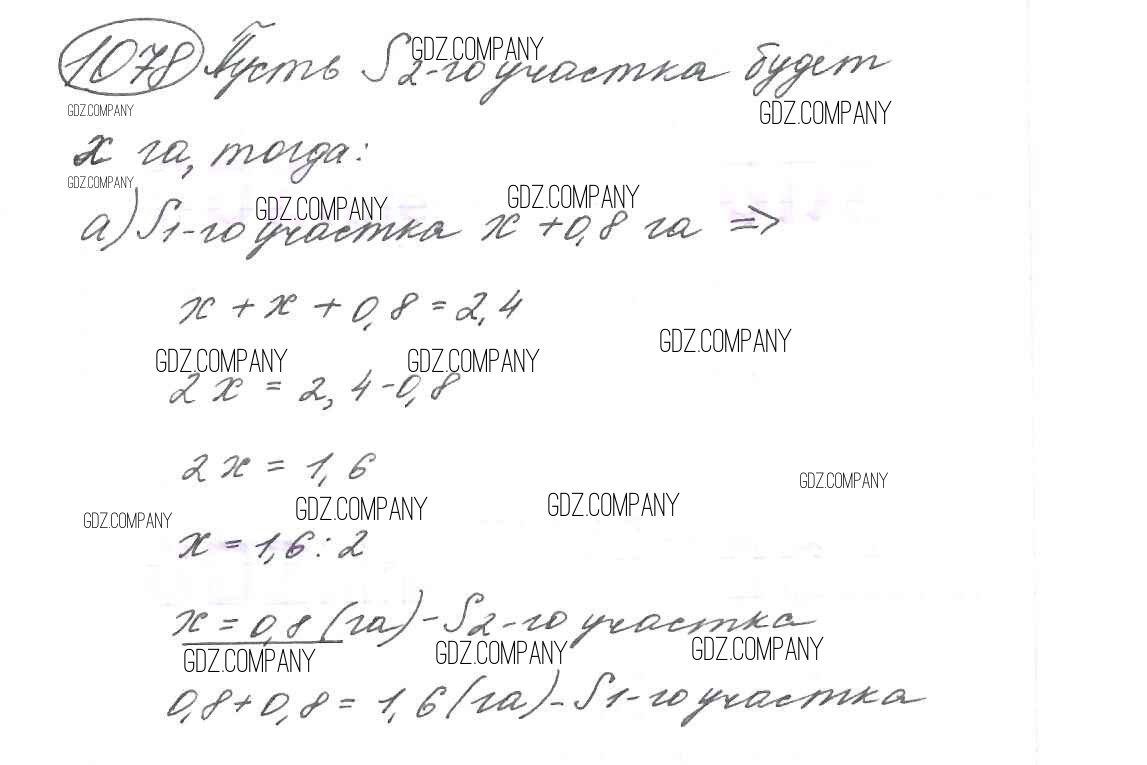 1078 Пусть S 2-го участка будет
GDZ.COMPANY
GDZ.COMPANY
GDZ.COMPANY
x га, тогда:
GDZ.COMPANY
GDZ.COMPANY
GDZ.COMPANY
а) S 1-го участка x + 0,8 га =>
x + x + 0,8 = 2,4
GDZ.COMPANY
GDZ.COMPANY
GDZ.COMPANY
2x = 2,4 - 0,8
2x = 1,6
GDZ.COMPANY
GDZ.COMPANY
GDZ.COMPANY
GDZ.COMPANY
x = 1,6 : 2
x = 0,8 (га) - S 2-го участка
GDZ.COMPANY
GDZ.COMPANY
GDZ.COMPANY
0,8 + 0,8 = 1,6 (га) - S 1-го участка